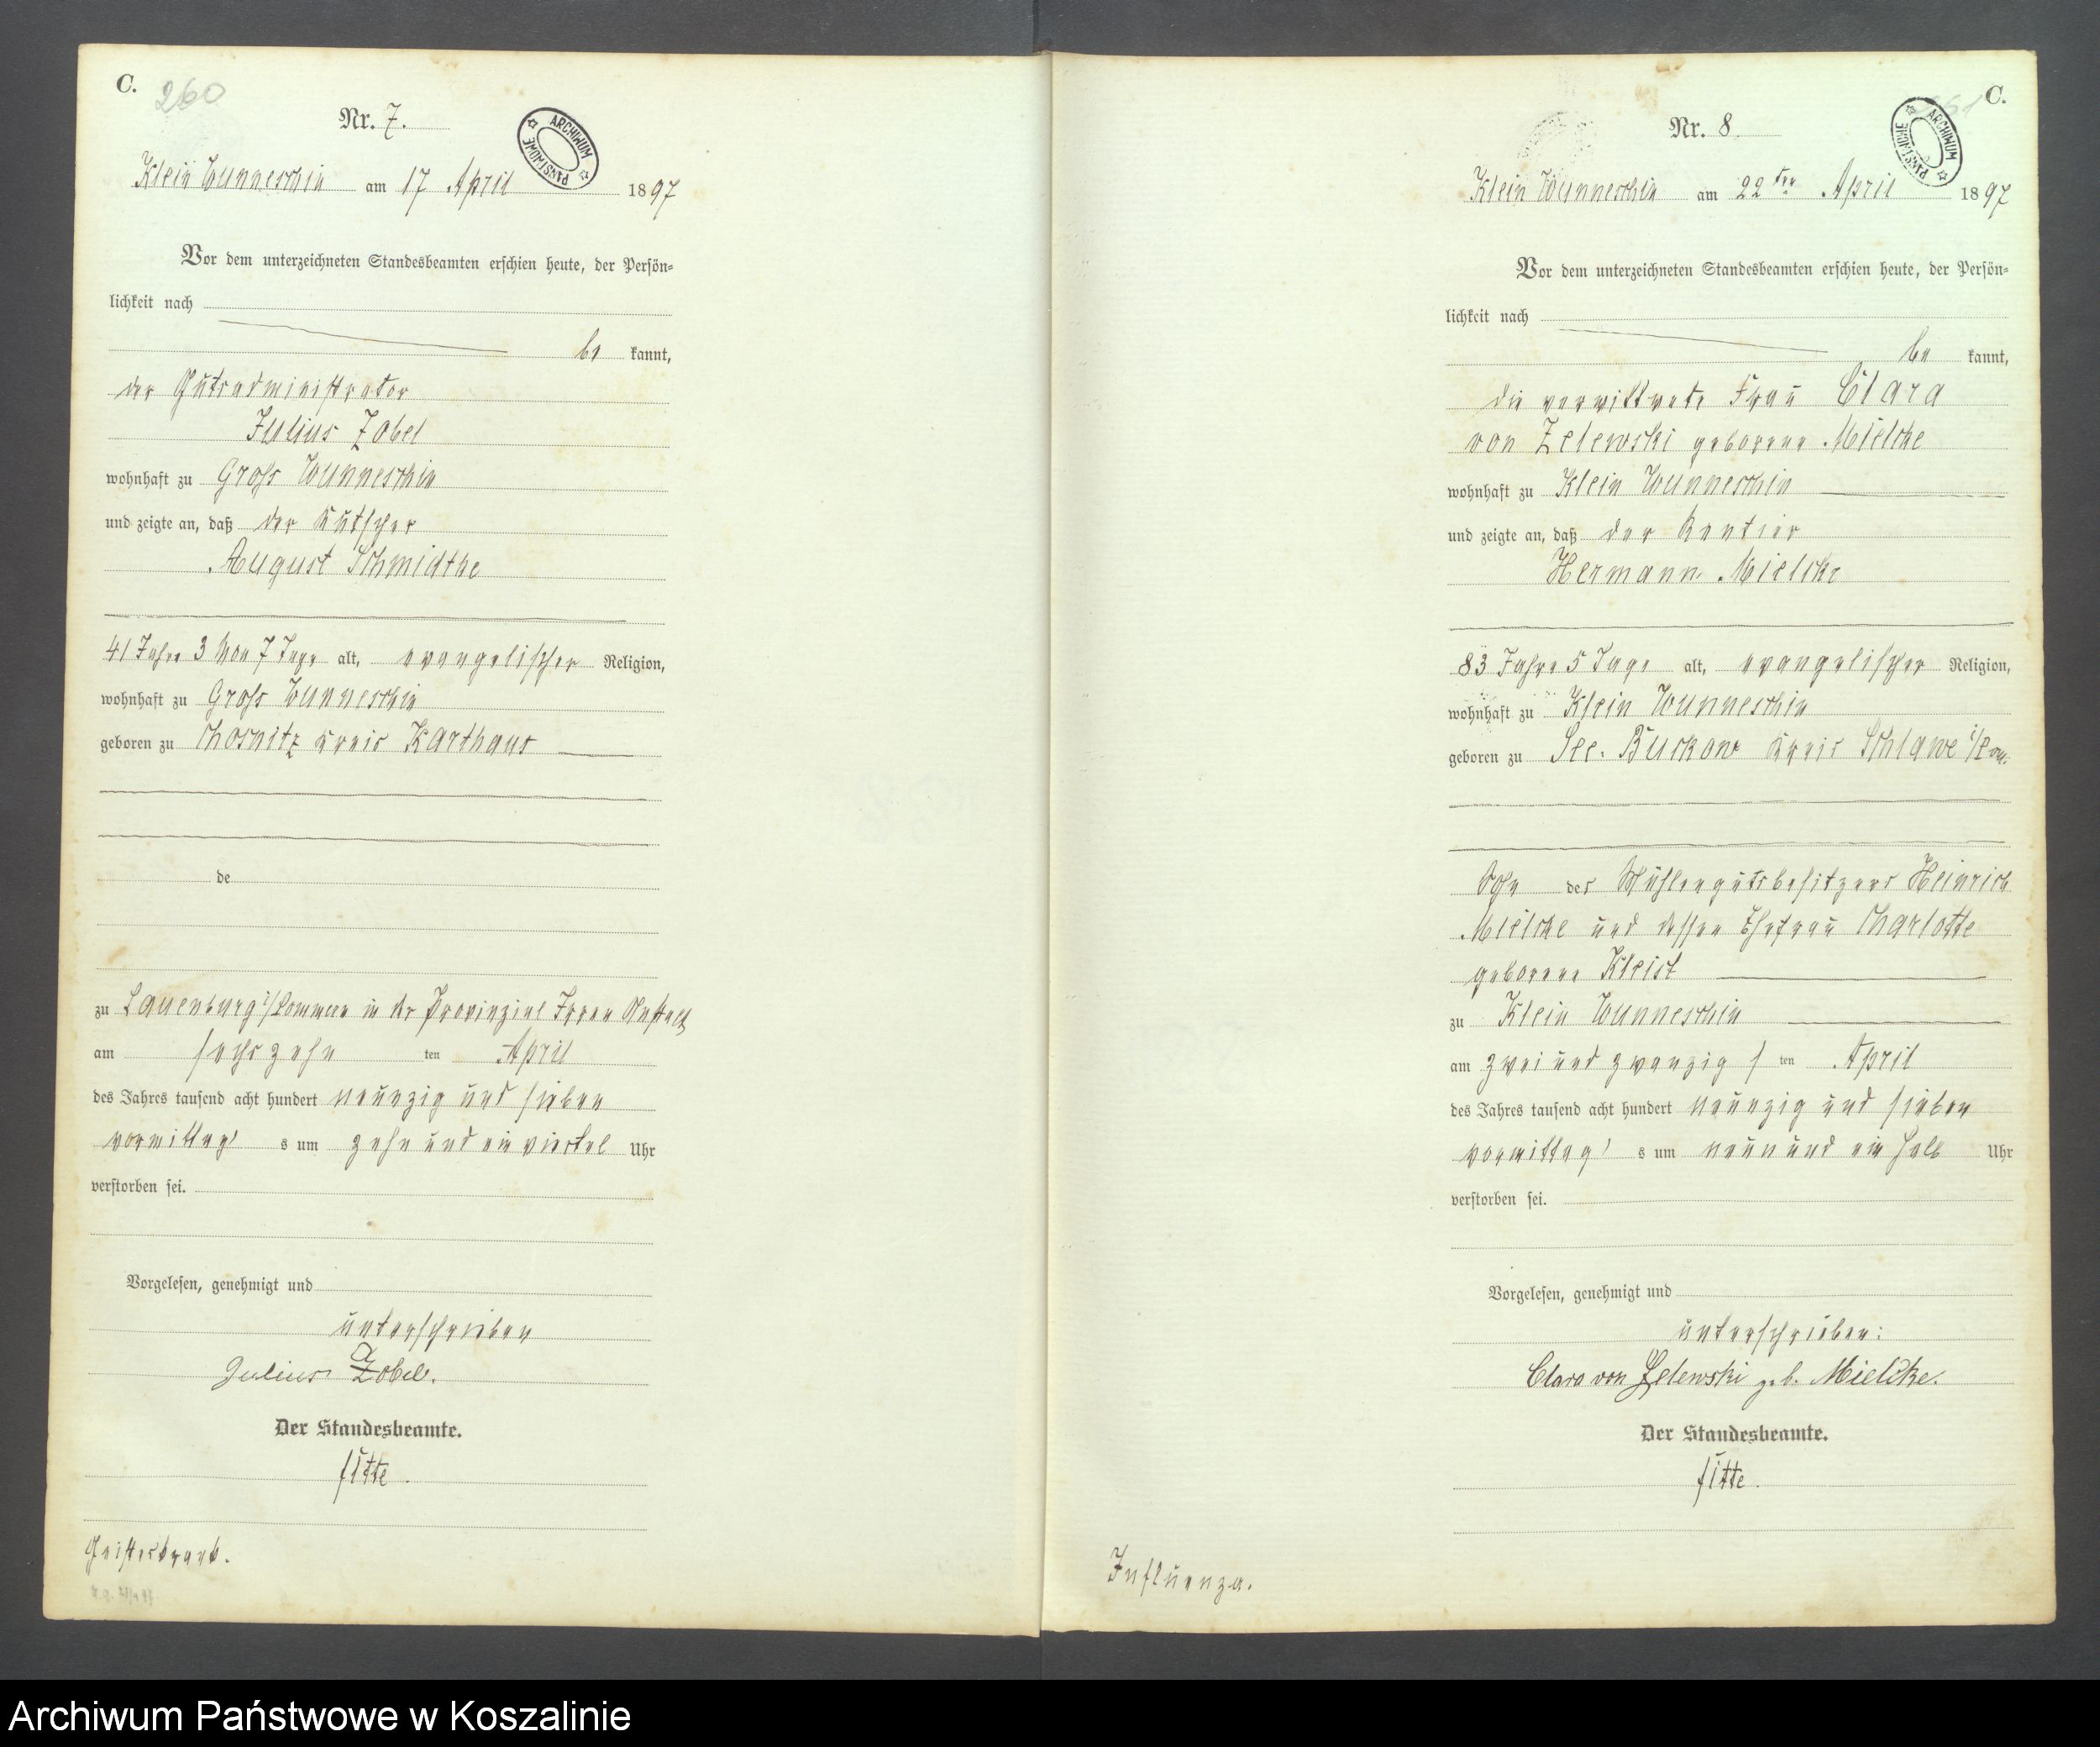 C.
260
Nr. 7.
ARCHIWUM PAŃSTWOWE
Klein Wunneschin am 17 April 1897
Vor dem unterzeichneten Standesbeamten erschien heute, der Persön-
lichkeit nach
be kannt,
der Gutsadministrator
Julius Zobel
wohnhaft zu Groß Wunneschin
und zeigte an, daß der Kutscher
August Schmidtke
41 Jahre 3 Mon 7 Tage alt, evangelischer Religion,
wohnhaft zu Groß Wunneschin
geboren zu Chosnitz Kreis Karthaus
de
zu Lauenburg i/Pommern in der Provinzial Irren Anstalt
am sechszehn ten April
des Jahres tausend acht hundert neunzig und sieben
vormittag s um zehn und ein viertel Uhr
verstorben sei.
Vorgelesen, genehmigt und
unterschrieben
Julius Zobel.
Der Standesbeamte.
Fitte.
Geisteskrank.
C.
261
Nr. 8.
ARCHIWUM PAŃSTWOWE
Klein Wunneschin am 22 ten April 1897
Vor dem unterzeichneten Standesbeamten erschien heute, der Persön-
lichkeit nach
be kannt,
die verwittwete Frau Clara
von Zelewski geborene Mielcke
wohnhaft zu Klein Wunneschin
und zeigte an, daß der Rentier
Hermann Mielcke
83 Jahre 5 Tage alt, evangelischer Religion,
wohnhaft zu Klein Wunneschin
geboren zu See. Buckow Kreis Schlawe i/Pom.
Sohn des Mühlengutsbesitzers Heinrich
Mielcke und dessen Ehefrau Charlotte
geborene Kleist
zu Klein Wunneschin
am zwei und zwanzig s ten April
des Jahres tausend acht hundert neunzig und sieben
vormittag s um neun und ein halb Uhr
verstorben sei.
Vorgelesen, genehmigt und
unterschrieben:
Clara von Zelewski geb. Mielcke.
Der Standesbeamte.
Fitte.
Influenza.
Archiwum Państwowe w Koszalinie